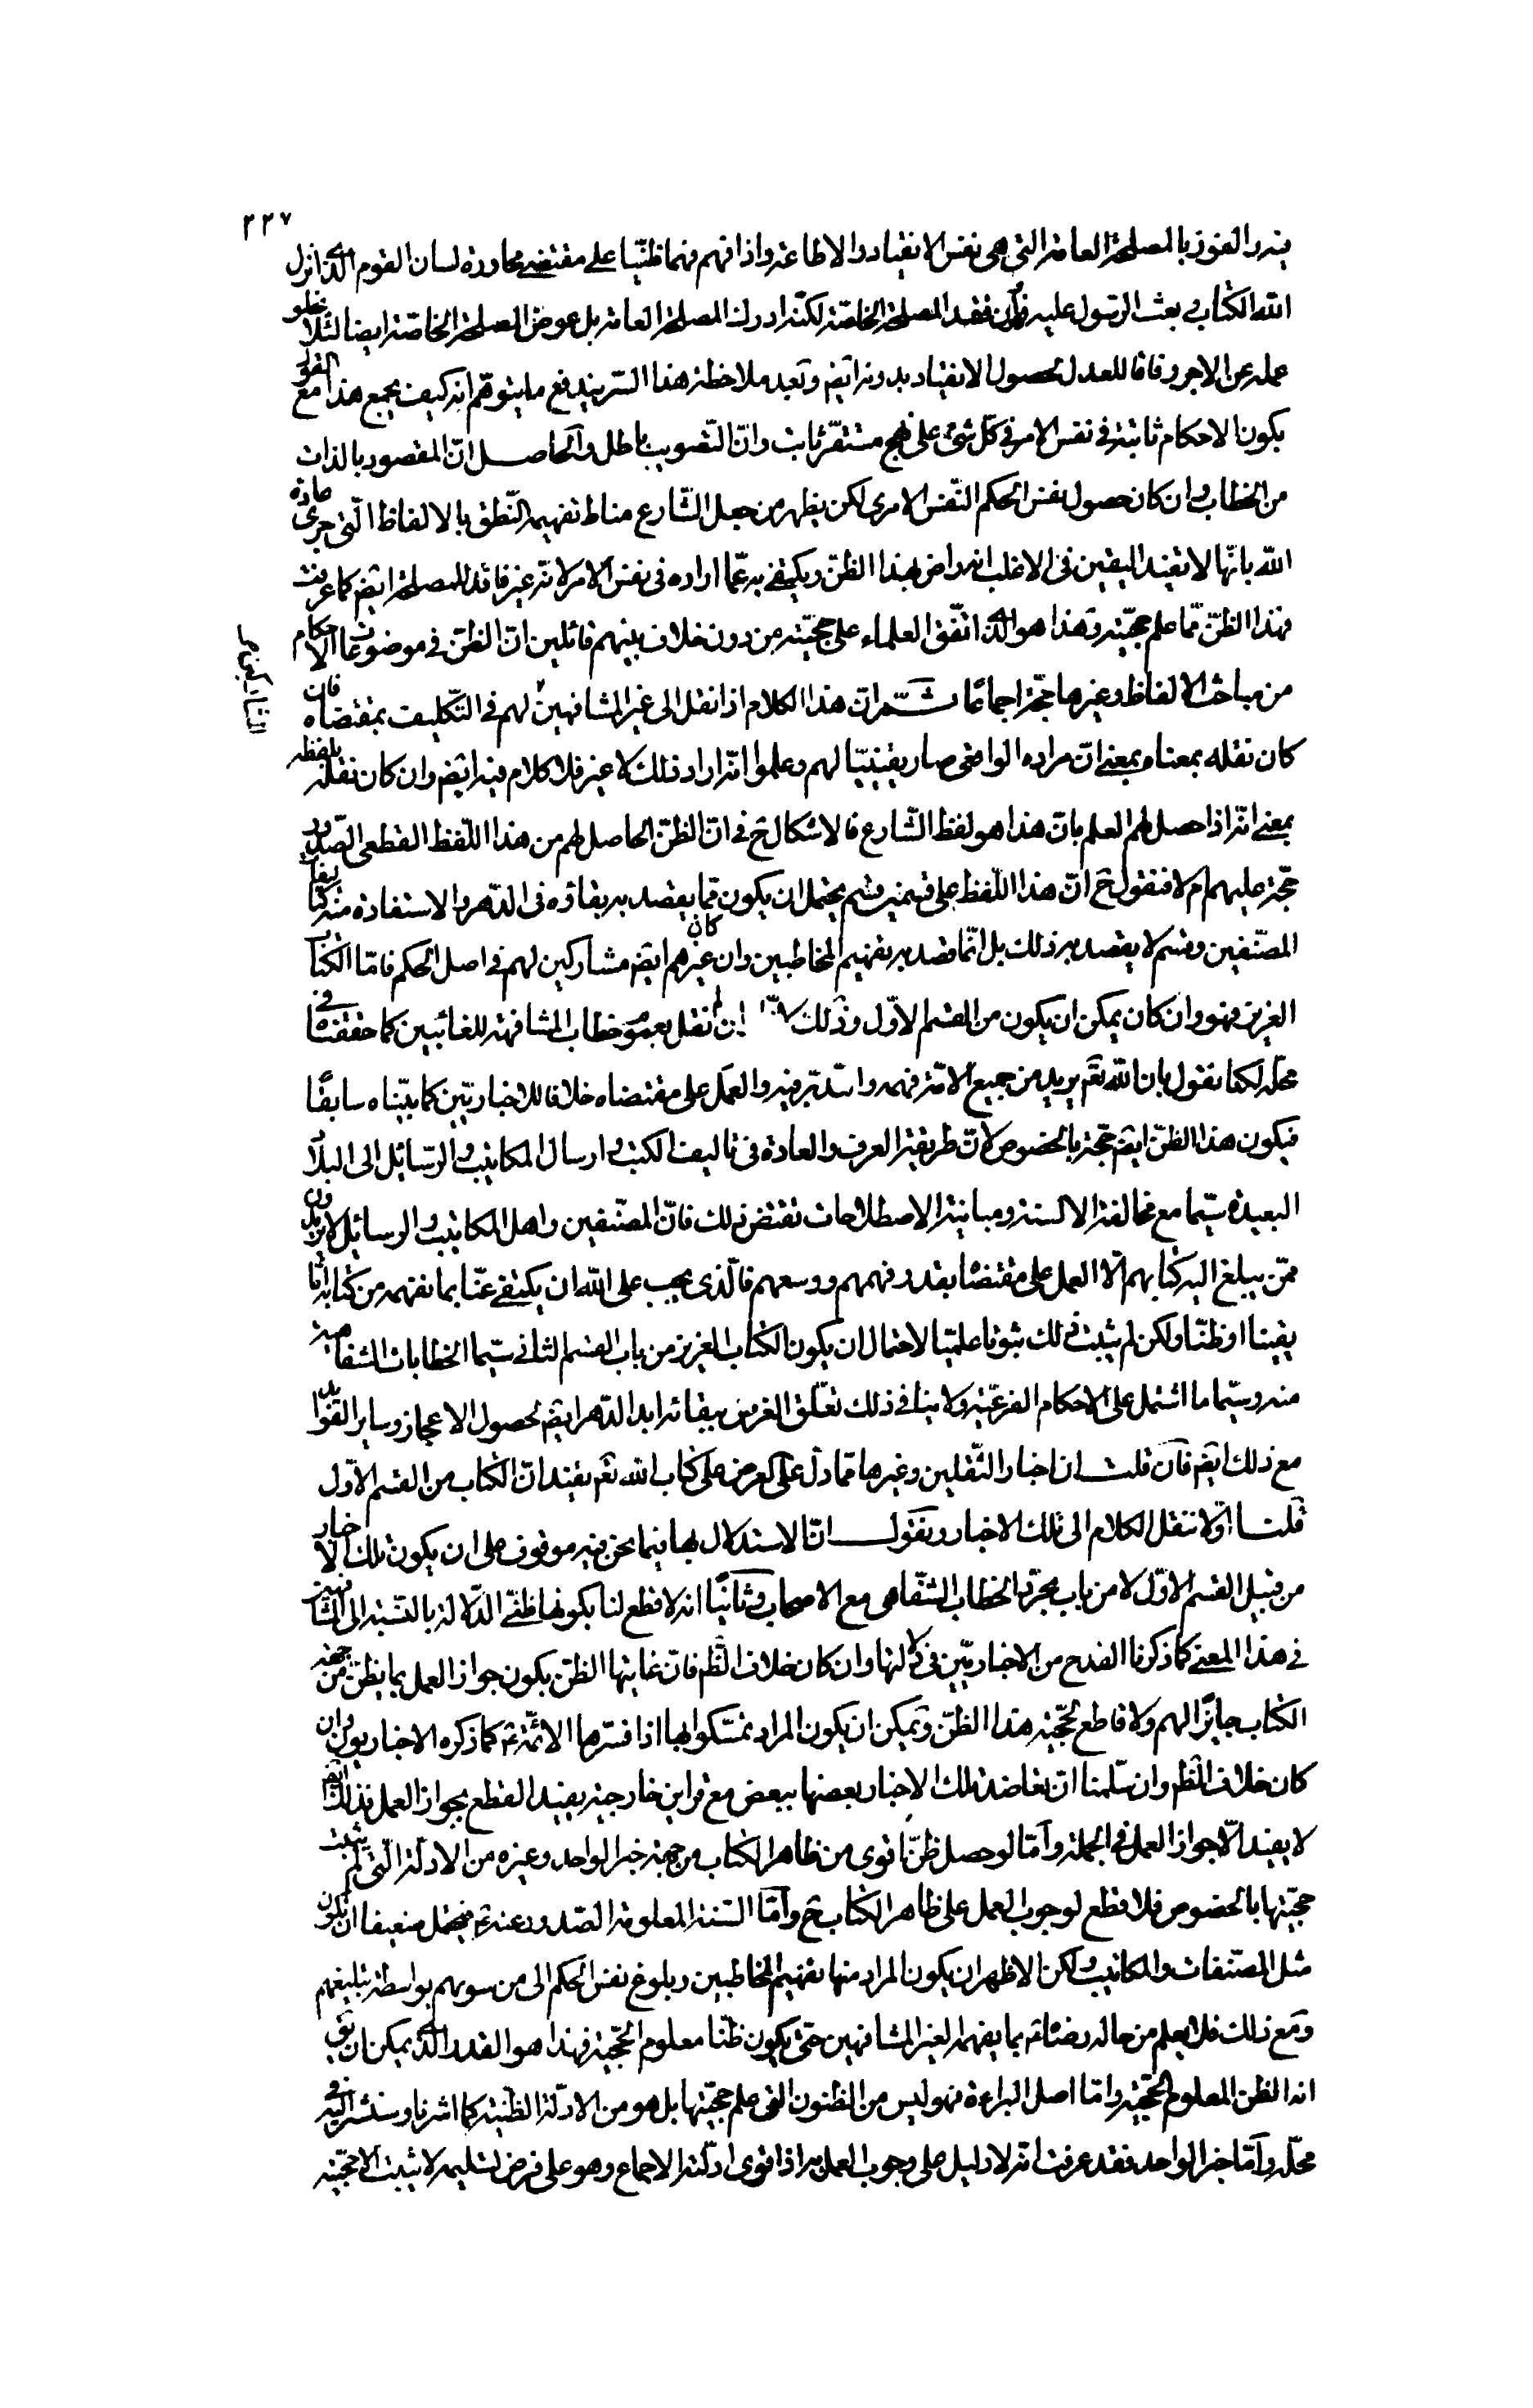 ٢٢٧
فيه والفوز بالمصلحة العامة التى هى نفس الانقياد والاطاعة واذا فهم فهما ظنّيّا على مقتضى محاورة لسان القوم الّذى انزل
الله الكتاب وبعث الرّسول عليه فان فقد المصلحة الخاصّة لكنّه ادرك المصلحة العامة بل عوض المصلحة الخاصّة ايضا لئلّا يخلو
عمله عن الاجر وفاقا للعدل لحصول الانقياد بدونه ايضم وبعد ملاحظة هذا السّر يندفع ما يتوهّم انه كيف يجمع هذا مع القول
بكون الاحكام ثابتة فى نفس الامر فى كلّ شئ على نهج مستقرّ ثابت وانّ التّصويب باطل والحاصل انّ المقصود بالذات
من الخطاب وان كان حصول نفس الحكم النّفس الامرى لكن يظهر من جعل الشّارع مناط تفهيمه النّطق بالالفاظ الّتى جرى عادة
الله بانّها لا تفيد اليقين فى الاغلب انه راض بهذا الظنّ ويكتفى به عمّا اراده فى نفس الامر لانّه غير فاقد للمصلحة ايضم كما عرفت
فهذا الظنّ ممّا علم حجيّته وهذا هو الّذى اتّفق العلماء على حجيّته من دون خلاف بينهم قائلين انّ الظنّ فى موضوعات الاحكام
من مباحث الالفاظ وغيرها حجّة اجماعا ثمّ انّ هذا الكلام اذا نقل الى غير المشافهين لهم فى التّكليف بمقتضاه فان
كان نقله بمعناه بمعنى انّ مراده الواضحى صار يقينيّا لهم وعلموا انّه اراد ذلك لا غير فلا كلام فيه ايضم وان كان نقله بلفظه
بمعنى انّه اذا حصل لهم العلم بانّ هذا هو لفظ الشّارع فالاشكال ح فى انّ الظنّ الحاصل لهم من هذا اللّفظ القطعى الصّدور
حجّة عليهم ام لا فنقول ح انّ هذا اللّفظ على قسمين قسم يحتمل ان يكون ممّا يقصد به بقاؤه فى الدّهر والاستفادة منه كتاليفات
المصنّفين وقسم لا يقصد به ذلك بل انّما قصد به تفهيم المخاطبين وان كان غيرهم ايضم مشاركين لهم فى اصل الحكم فامّا الكتاب
العزيز فهو وان كان يمكن ان يكون من القسم الاوّل وذلك لانّا ان لم نقل بعموم خطاب المشافهة للغائبين كما حققناه فى
محلّه لكنا نقول بان الله تعم يريد من جميع الامّة فهمه والتّدبّر فيه والعمل على مقتضاه خلافا للاخباريّين كما بيّناه سابقًا
فيكون هذا الظنّ ايضم حجّة بالخصوص لانّ طريقة العرف والعادة فى تاليف الكتب وارسال المكاتيب والرّسائل الى البلاد
البعيدة سيّما مع مخالفة الالسنة ومباينة الاصطلاحات تقتضى ذلك فانّ المصنّفين واهل المكاتيب والرسائل لا يريدون
ممّن يبلغ اليه كتابهم الّا العمل على مقتضاه بقدر فهمهم ووسعهم فالّذى يجب على الله ان يكتفى عنّا بما نفهمه من كتابه امّا
يقينا او ظنّا ولكن لم يثبت ذلك ثبوتا علميّا لاحتمال ان يكون الكتاب العزيز من باب القسم الثانى سيّما الخطابات الشفاهية
منه وسيّما ما اشتمل على الاحكام الفرعيّة ولا ينافى ذلك تعلّق الغرض ببقائه ابد الدّهر ايضم لحصول الاعجاز وساير الفوايد
مع ذلك ايضم فان قلت ان اخبار الثّقلين وغيرها ممّا دلّ على العرض على كتاب الله تعم يفيد انّ الكتاب من القسم الاوّل
قلت اوّلا ننقل الكلام الى تلك الاخبار ونقول انّ الاستدلال بها فيما نحن فيه موقوف على ان يكون تلك الاخبار
من قبيل القسم الاوّل لا من باب مجرّد الخطاب الشّفاهى مع الاصحاب وثانيًا انه لا قطع لنا بكونها ظنّى الدّلالة بالنّسبة الى المشافهين
فى هذا المعنى كما ذكرنا القدح من الاخباريّين فى دلالتها وان كان خلاف الظّم فانّ غايتها الظنّ بكون جواز العمل بما يظنّ من جهة
الكتاب جايزًا لهم ولا قاطع لحجّية هذا الظنّ ويمكن ان يكون المراد تمسّكوا بها اذا فسّرها الائمّة عم كما ذكره الاخباريون وان
كان خلاف الظّم وان سلّمنا انّ تعاضد تلك الاخبار بعضها ببعض مع قراين خارجيّة يفيد القطع بجواز العمل فذلك ايضم
لا يفيد الّا جواز العمل فى الجملة وامّا لو حصل ظنّا قوى من ظاهر الكتاب من جهة خبر الواحد وغيره من الادلّة التى لم يثبت
حجيّتها بالخصوص فلا قطع لوجوب العمل على ظاهر الكتاب ح وامّا السّنّة المعلومة الصّدور عنه عم فيحتمل ضعيفا ان يكون
مثل المصنّفات والمكاتيب ولكن الاظهر ان يكون المراد منها تفهيم المخاطبين وبلوغ نفس الحكم الى من سويهم بواسطة تبليغهم
ومع ذلك فلا يعلم من حاله رضاه بما يفهمه لغير المشافهين حتّى يكون ظنّا معلوم الحجّية فهذا هو القدر الّذى يمكن ان يق
انه الظن المعلوم الحجّية وامّا اصل البراءة فهو ليس من الظنون التى علم حجيّتها بل هو من الادلّة الظّنّية كما اشرنا وسنشير اليه فى
محلّه وامّا خبر الواحد فقد عرفت انّه لا دليل على وجوب العمل به اذ اقوى ادلّته الاجماع وهو على فرض تسليمه لا يثبت الا حجّيته